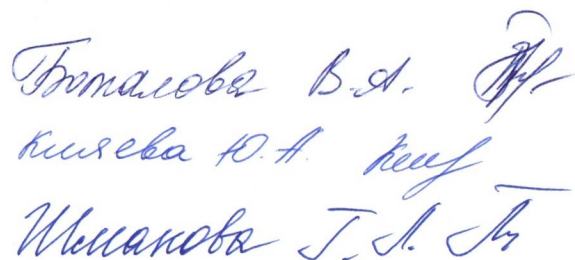 Боталова В.А.
Киляева Ю.А.
Шмакова Г.Л.